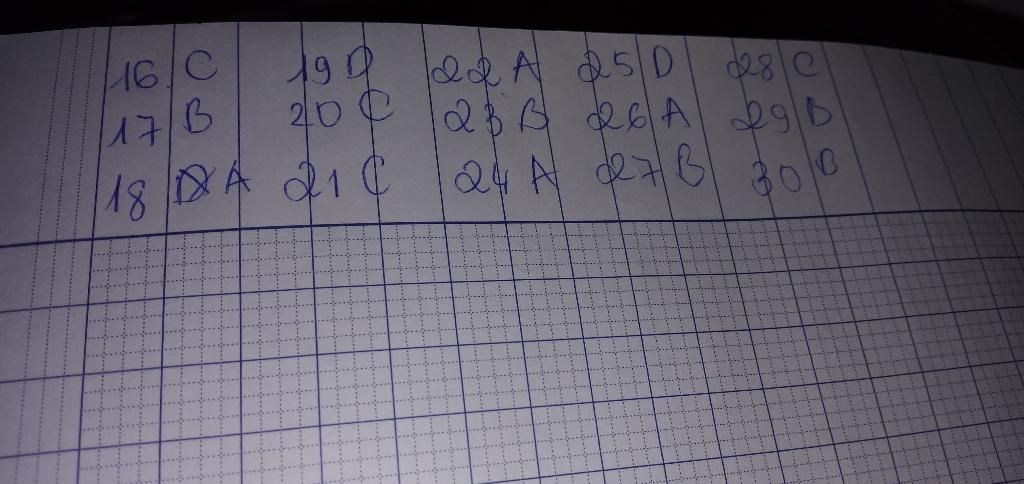 16 C 19 D 22 A 25 D 28 C
17 B 20 C 23 B 26 A 29 D
18 A 21 C 24 A 27 B 30 B